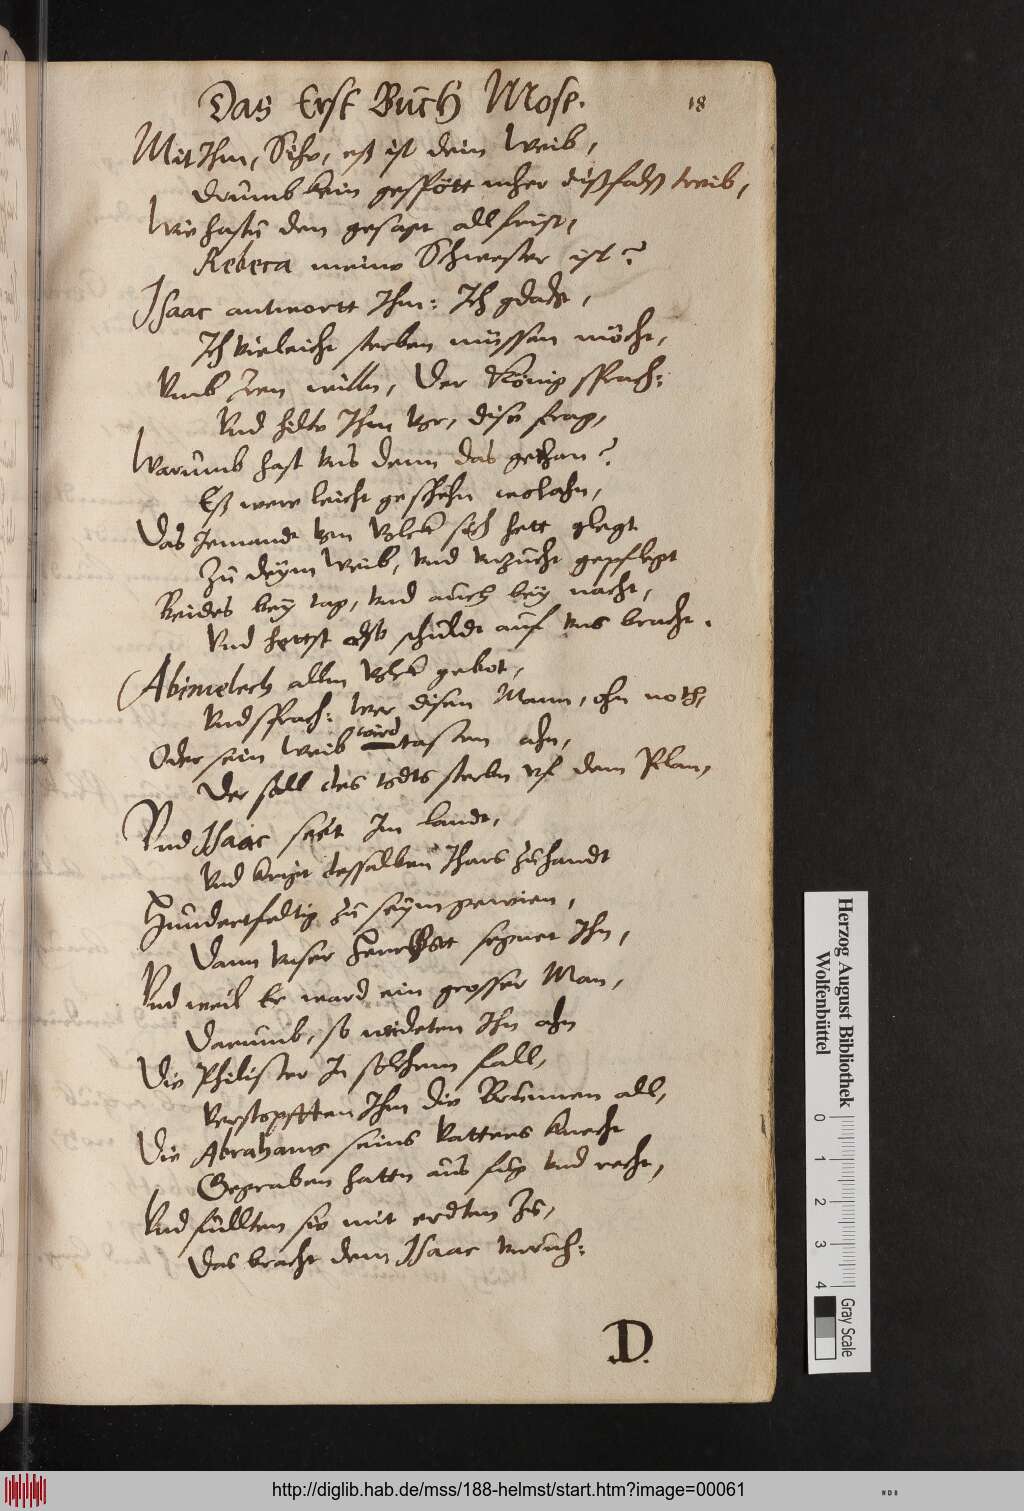 Das Erst Buch Mose.
18
Mit Ihm, Sihe, eß ist dein Weib,
drumb kein gespött mher dißfalß treib,
Wie hastu den gesagt all frist,
Rebeca meine Schwester ist?
Isaac antwortt Ihm: Ich gdacht,
Ich vieleicht sterben müssen möcht,
Vmb Iren willn, Der König sprach:
Vnd hilte Ihm vor, dise frag,
Warumb hast vns denn das gethan?
Eß were leicht geschehn wolahn,
Das Jemandt vom Volck sich hett glegt
Zu deym Weib, vnd vnzucht gepflegt
Beides bey tag, vnd auch bey nacht,
Vnd hettst also schuldt auf vns bracht.
Abimelech allm Volck gebot,
Vnd sprach: Wer disen Mann, ohn noth,
Oder sein Weib wird tasten ahn,
Der soll des todts sterbn vf dem Plan,
Vnd Isaac seet Im landt,
Vnd krigt desselben Ihars zuhandt
Hundertfeltig zu seym gewien,
Dann vnser Herr Gott segnet Ihn,
Vnd weil Er ward ein grosser Man,
Darumb, so neideten Ihn ahn
Die Philister In solchem fall,
Verstopfften Ihm die Brunnen all,
Die Abrahams seins Vatters knecht
Gegraben hattn aus fug vnd recht,
Vnd fullten sie mit erdten Zu,
Das bracht dem Isaac vnruh:
D.
Herzog August Bibliothek
Wolfenbüttel
0 1 2 3 4
Gray Scale
http://diglib.hab.de/mss/188-helmst/start.htm?image=00061